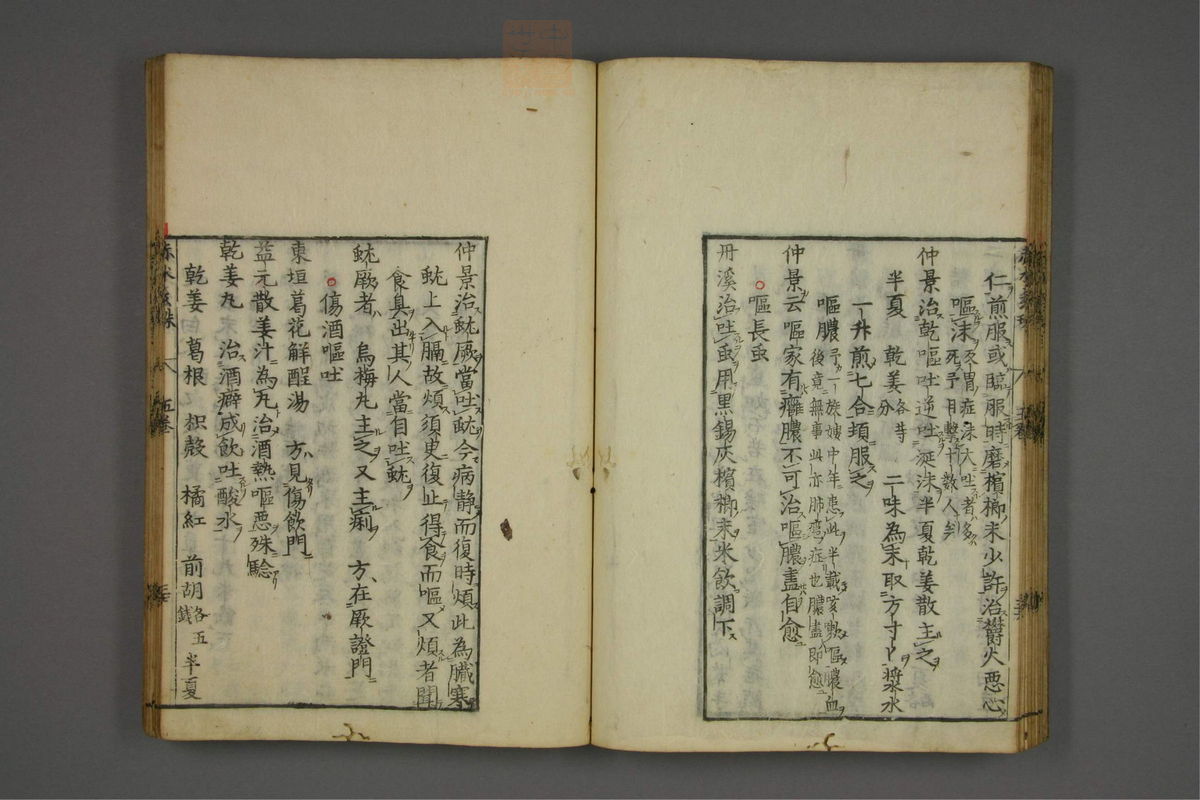 仁煎服或臨服時磨檳榔末少許治欝火悪心
嘔沫
死予目擊十數人矣
仲景治乾嘔吐逆吐涎沫半夏乾姜散主之
半夏 乾姜各等分 二味為末取方寸匕漿水
一升煎七合頓服之
嘔膿予一族嫂中年患此半載咳嗽嘔膿血
後竟無事此亦肺癰症也膿盡即愈
仲景云嘔家有癰膿不可治嘔膿盡自愈
○嘔長虫
丹溪治吐虫用黒錫灰檳榔末米飲調下
仲景治蚘厥當吐蚘今病静而復時煩此為臓寒
蚘上入膈故煩須臾復止得食而嘔又煩者聞
食臭出其人當自吐蚘
蚘厥者 烏梅丸主之又主痢 方在厥證門
○傷酒嘔吐
東垣葛花解酲湯 方見傷飲門
益元散姜汁為丸治酒熱嘔悪殊騐
乾姜丸末 治酒癖成飲吐酸水
乾姜 葛根 枳殼 橘紅 前胡各五錢 半夏